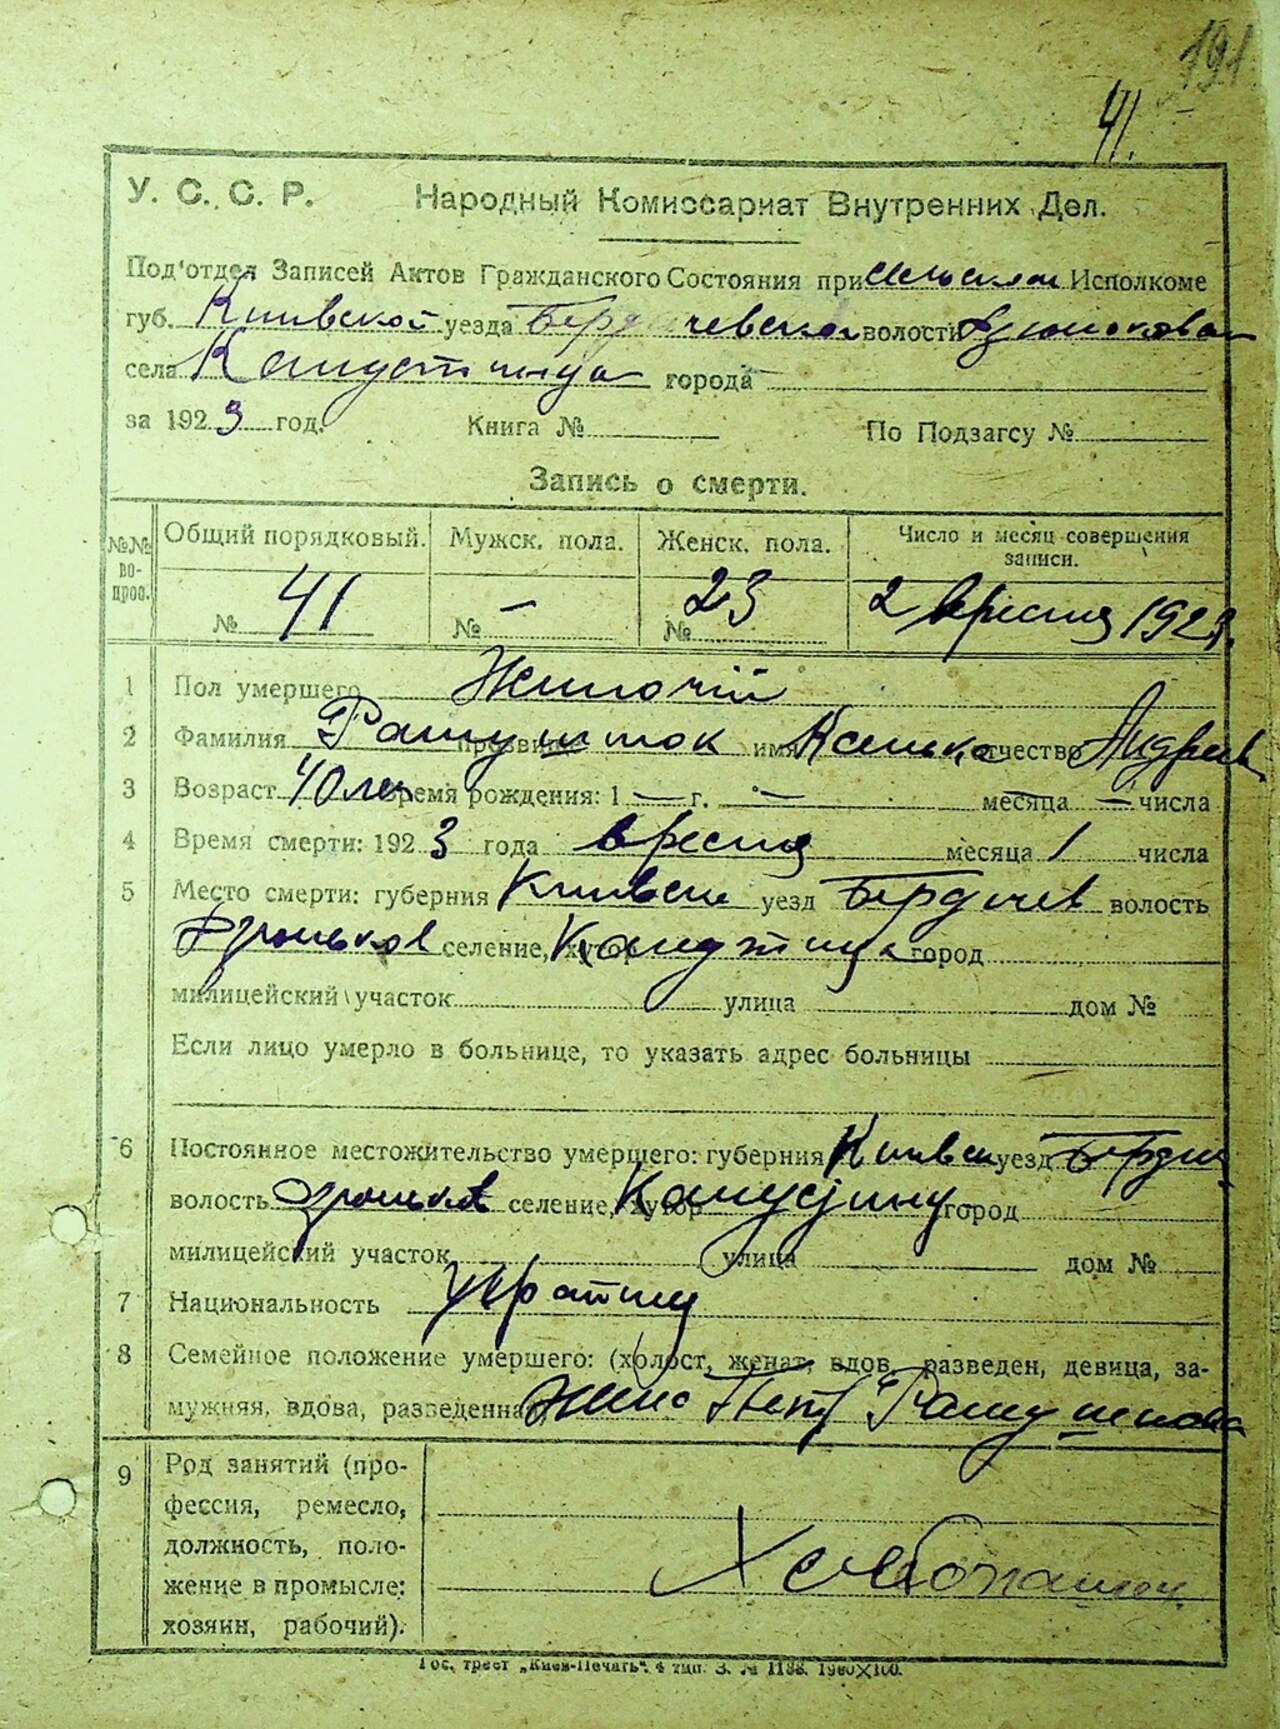 191
41.
У. С. С. Р. Народный Комиссариат Внутренних Дел.
Под'отдел Записей Актов Гражданского Состояния при Исполкоме
губ. Київской уезда Бердичевской волости
села города
за 1923 год. Книга № По Подзагсу №
Запись о смерти.
№№ вопрос. Общий порядковый. Мужск. пола. Женск. пола. Число и месяц совершения записи.
№ 41 № — № 23 2 вресня 1923.
1 Пол умершего Жиночій
2 Фамилия прозвище имя отчество Андреев
3 Возраст 40 лет Время рождения: 1 — г. — месяца — числа
4 Время смерти: 1923 года вресня месяца 1 числа
5 Место смерти: губерния Київськ уезд Бердичев волость
селение, хутор город
милицейский участок улица дом №
Если лицо умерло в больнице, то указать адрес больницы
6 Постоянное местожительство умершего: губерния Київськ уезд Бердич
волость селение, хутор город
милицейский участок улица дом №
7 Национальность
8 Семейное положение умершего: (холост, женат, вдов, разведен, девица, за-
мужняя, вдова, разведенна
9 Род занятий (про-
фессия, ремесло,
должность, поло-
жение в промысле:
хозяин, рабочий).
Гос. трест „Киев-Печать“. 4 тип. З. № 1138.